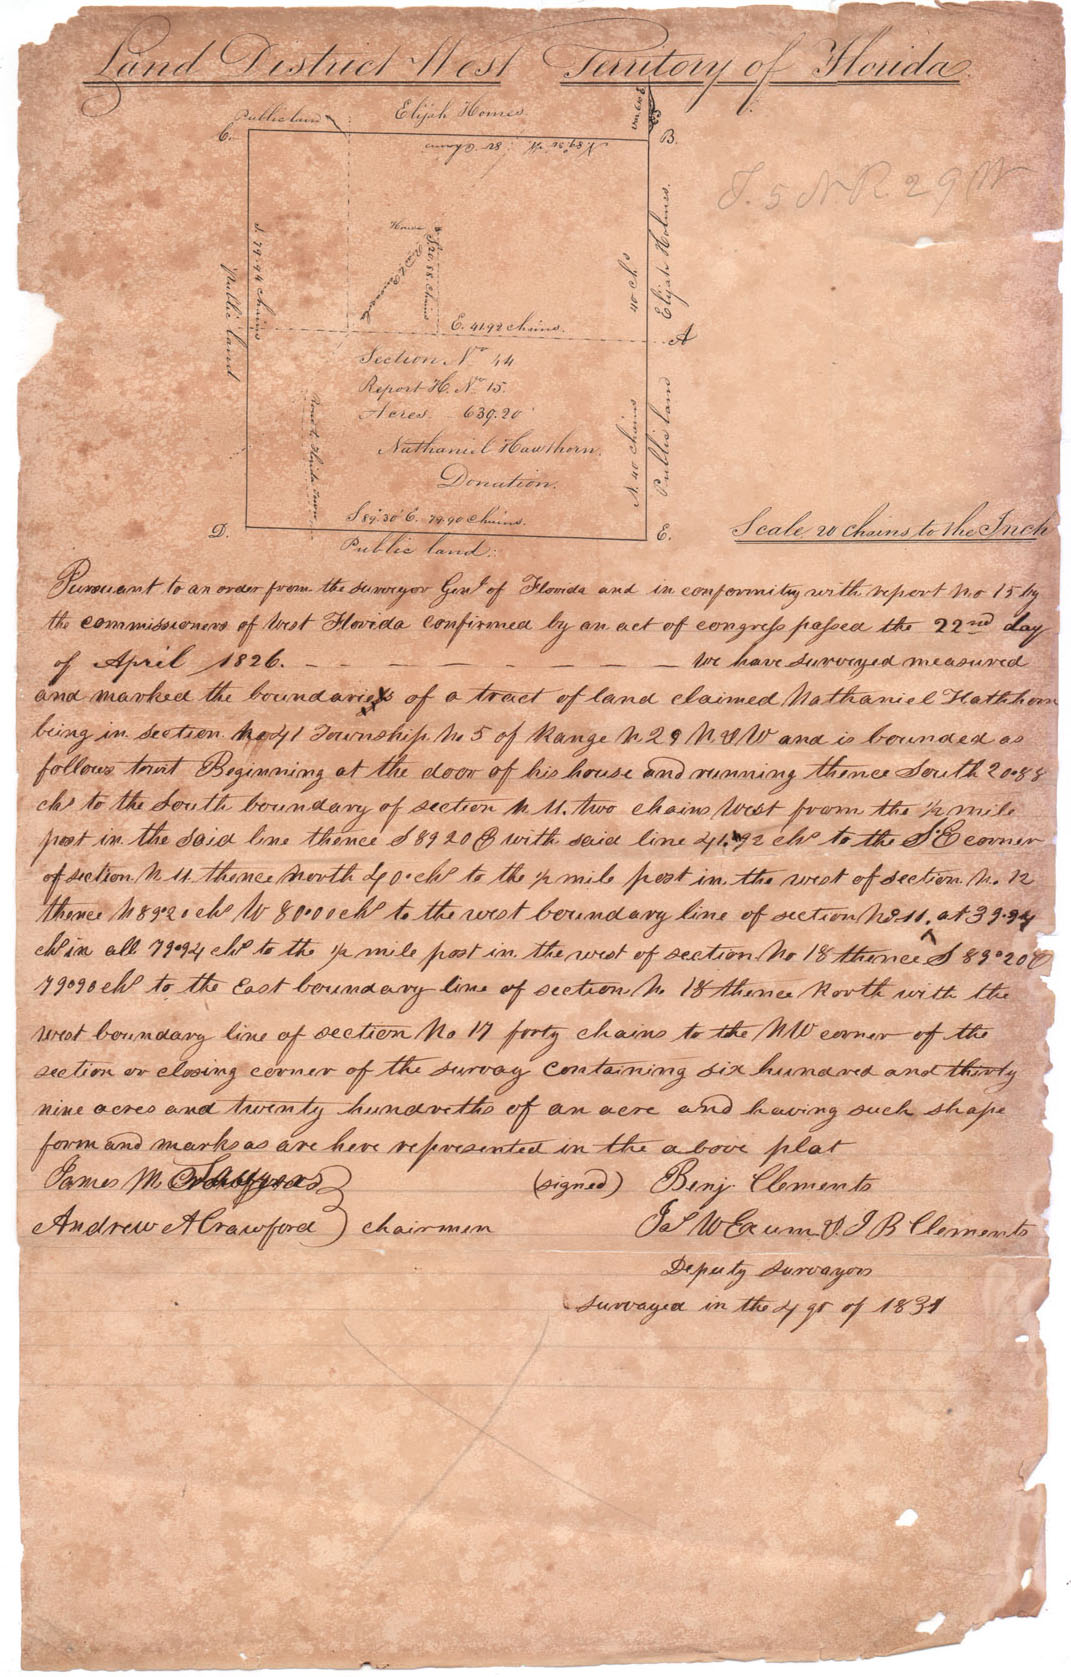 Land District West Territory of Florida
Public land
Elijah Homes
C.
B.
N 89° W 82 Chains
T. 5 N R. 29 W
S. 79.94 chains
Public land
House
S 20 88 Chains
40 chs
Elijah Holmes.
E. 41.92 chains.
A
Section. No 44
Report H. No 15.
Acres. 639.20
Nathaniel Hawthorn.
Donation.
N. 40 chains
Public land
S 89°.30' E. 79.90 Chains.
D.
E.
Public land.
Scale 20 chains to the Inch
Pursuant to an order from the surveyor Genl of Florida and in conformity with report No 15 by
the commissioners of West Florida confirmed by an act of congress passed the 22nd day
of April 1826. – – – – – – – – We have surveyed measured
and marked the boundaries of a tract of land claimed Nathaniel Hathhorn
being in section No 41 Township No 5 of Range N 29 N & W and is bounded as
follows towit Beginning at the door of his house and running thence South 20.88
chs to the South boundary of section N 11. two chains West from the ½ mile
post in the said line thence S 89 20 E with said line 41.92 chs to the S.E corner
of section N 11. thence North 40. chs to the ½ mile post in the west of section No. 12
thence N 89°20 chs W 80.00 chs to the west boundary line of section No 11. at 39.94
chs in all 79.94 chs to the ½ mile post in the west of section No 18 thence S 89°20 E
79.90 chs to the East boundary line of section No 18 thence North with the
west boundary line of section No 17 forty chains to the NW corner of the
section or closing corner of the survay containing six hundred and thirty
nine acres and twenty hundreths of an acre and having such shape
form and marks as are here represented in the above plat
James M
(signed) Benj. Clements
Andrew A Crawford } chairmen
Jas W Exum & J B Clements
Deputy survayors
survayed in the 4 qr of 1831